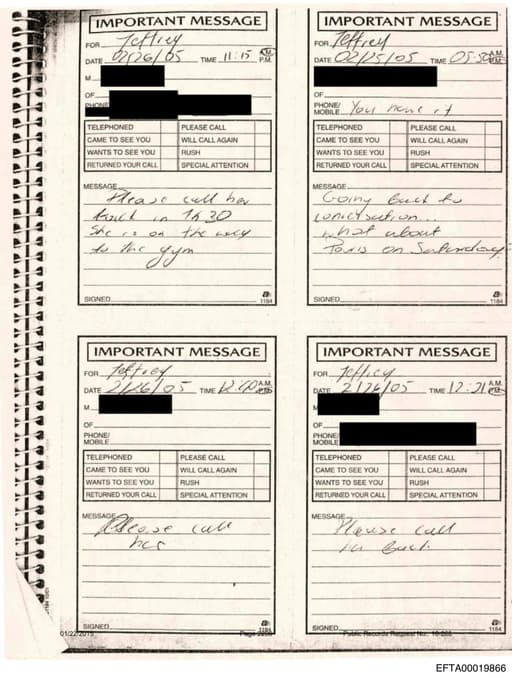 IMPORTANT MESSAGE
FOR Jeffrey
DATE 02/26/05 TIME 11:15 A.M. P.M.
M
OF
PHONE/
TELEPHONED PLEASE CALL
CAME TO SEE YOU WILL CALL AGAIN
WANTS TO SEE YOU RUSH
RETURNED YOUR CALL SPECIAL ATTENTION
MESSAGE
Please call her
back in 1h30
She is on the way
to the gym
SIGNED
1184
IMPORTANT MESSAGE
FOR Jeffrey
DATE 02/25/05 TIME 05:50 A.M. P.M.
OF
PHONE/
MOBILE You have it
TELEPHONED PLEASE CALL
CAME TO SEE YOU WILL CALL AGAIN
WANTS TO SEE YOU RUSH
RETURNED YOUR CALL SPECIAL ATTENTION
MESSAGE
Going back to
what about
Paris on Saturday?
SIGNED
1184
IMPORTANT MESSAGE
FOR Jeffrey
DATE 2/26/05 TIME A.M. P.M.
M
OF
PHONE/
MOBILE
TELEPHONED PLEASE CALL
CAME TO SEE YOU WILL CALL AGAIN
WANTS TO SEE YOU RUSH
RETURNED YOUR CALL SPECIAL ATTENTION
MESSAGE
Please call
her
SIGNED
1184
IMPORTANT MESSAGE
FOR Jeffrey
DATE 2/26/05 TIME 12:21 A.M. P.M.
M
OF
PHONE/
MOBILE
TELEPHONED PLEASE CALL
CAME TO SEE YOU WILL CALL AGAIN
WANTS TO SEE YOU RUSH
RETURNED YOUR CALL SPECIAL ATTENTION
MESSAGE
Please call
back
SIGNED
1184
01/22/2015 Page Public Records Request No.:
EFTA00019866